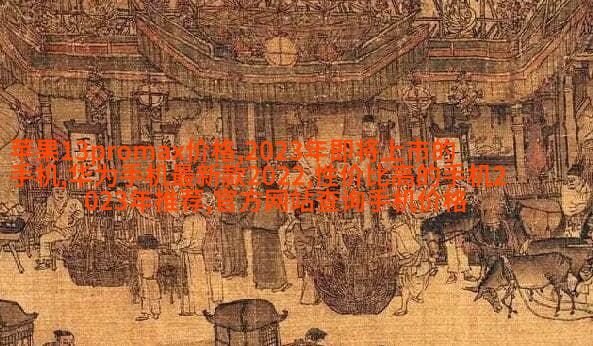 苹果13promax价格,2023年即将上市的
手机,华为手机最新款2022,性价比高的手机2
023年推荐,官方网站查询手机价格